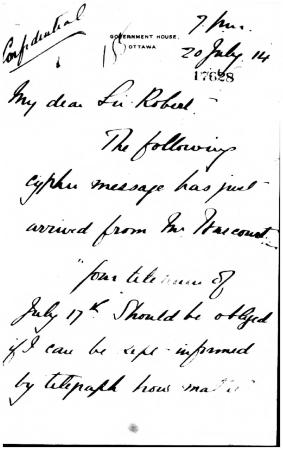 Confidential
7 pm.
GOVERNMENT HOUSE,
OTTAWA
20 July 14
17628
My dear Sir Robert
The following
cypher message has just
arrived from Mr Harcourt
"your telegram of
July 17th Should be obliged
if I can be kept informed
by telegraph how